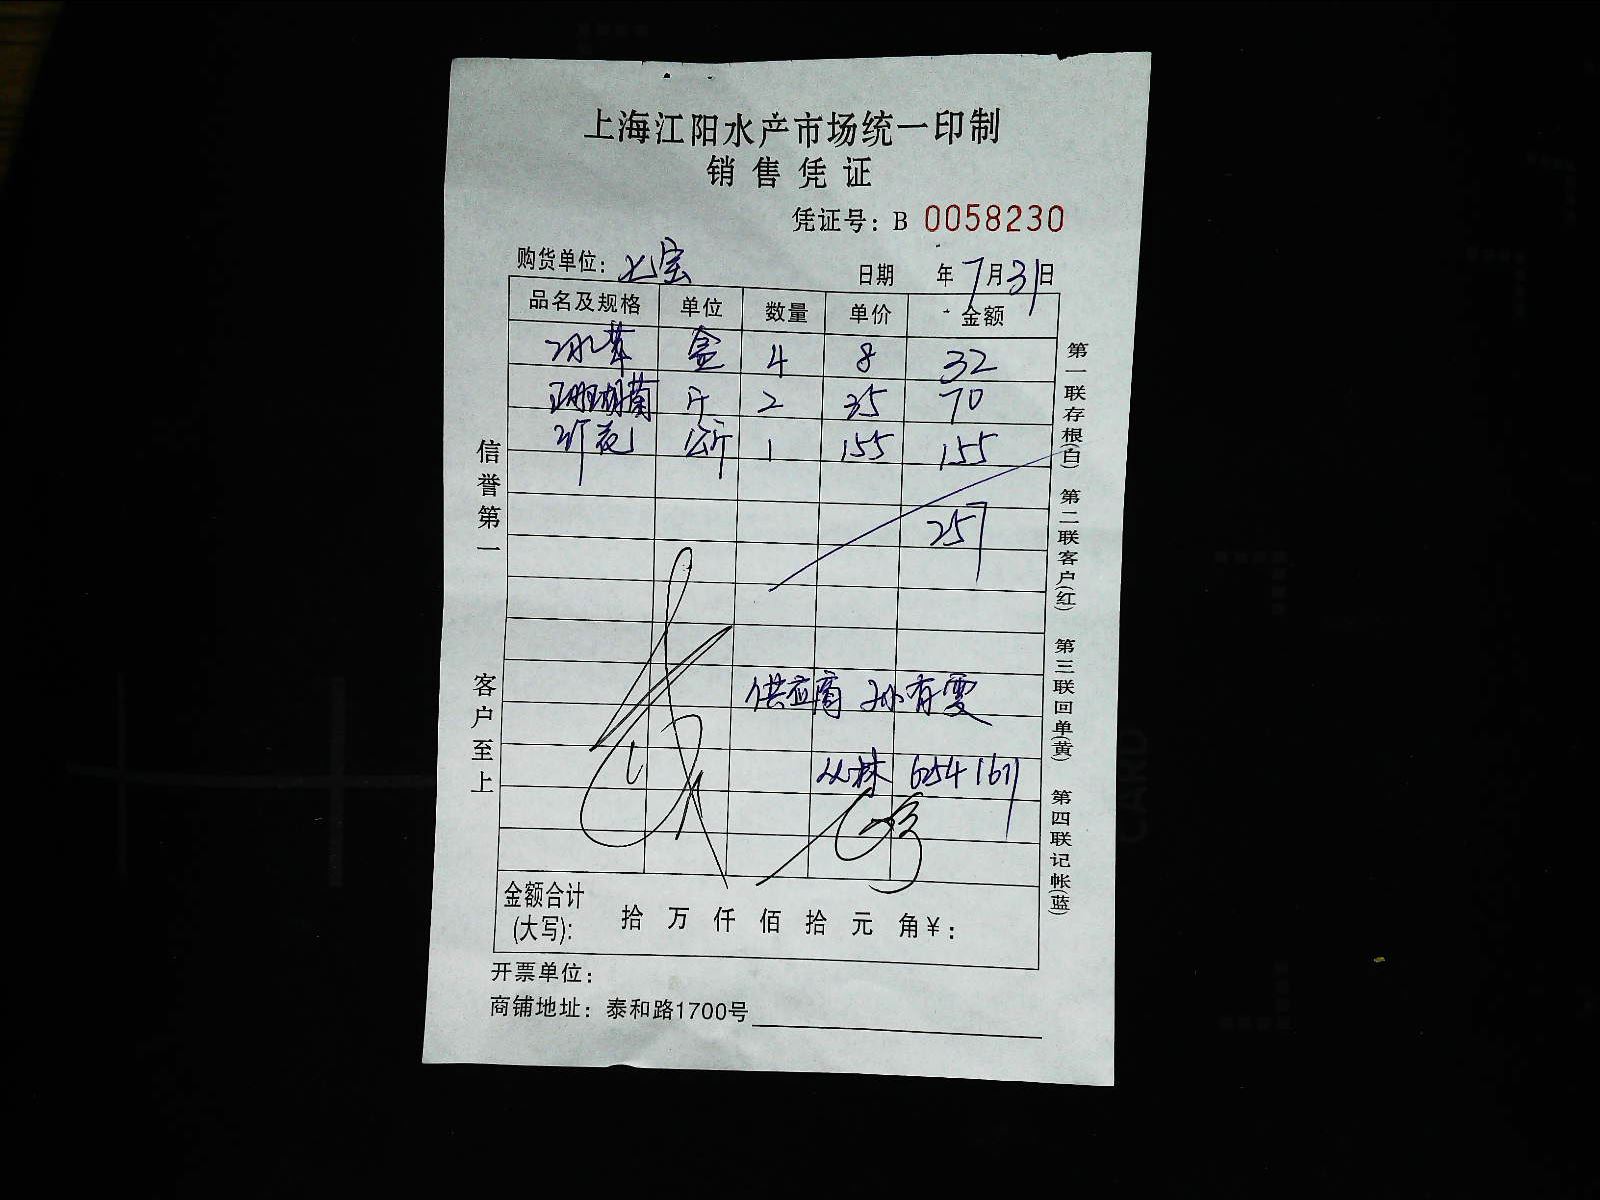 上海江阳水产市场统一印制
销售凭证
凭证号：B 0058230
购货单位：
日期 年 7月31日
品名及规格 单位 数量 单价 金额
冰草 盒 4 8 32
珊瑚菌 斤 2 35 70
公斤 1 155 155
257
供应商 孙有雯
丛林 62541671
金额合计
(大写)： 拾 万 仟 佰 拾 元 角 ¥：
开票单位：
商铺地址：泰和路1700号
信誉第一
客户至上
第一联存根(白)
第二联客户(红)
第三联回单(黄)
第四联记帐(蓝)